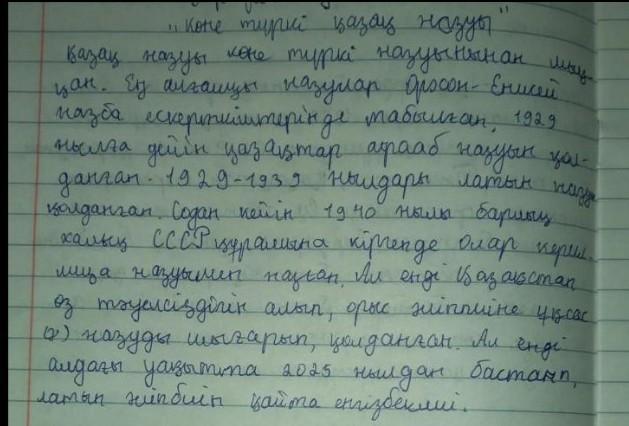 "көне түркі қазақ жазуы"
Қазақ жазуы көне түркі жазуынынан шық-
қан. Ең алғашқы жазулар Орхон-Енисей
жазба ескерткіштерінде табылған. 1929
жылға дейін қазақтар арааб жазуын қол-
данған. 1929-1939 жылдары латын жазу
қолданған. Содан кейін 1940 жылы барлық
халық СССР құрамына кіргенде олар кирил-
лица жазуымен жазған. Ал енді Қазақстан
өз тәуелсіздігін алып, орыс әліппиіне ұқсас
жазуды шығарып, қолданған. Ал енді
алдағы уақытта 2025 жылдан бастап,
латын әліпбиін қайта енгізбекші.